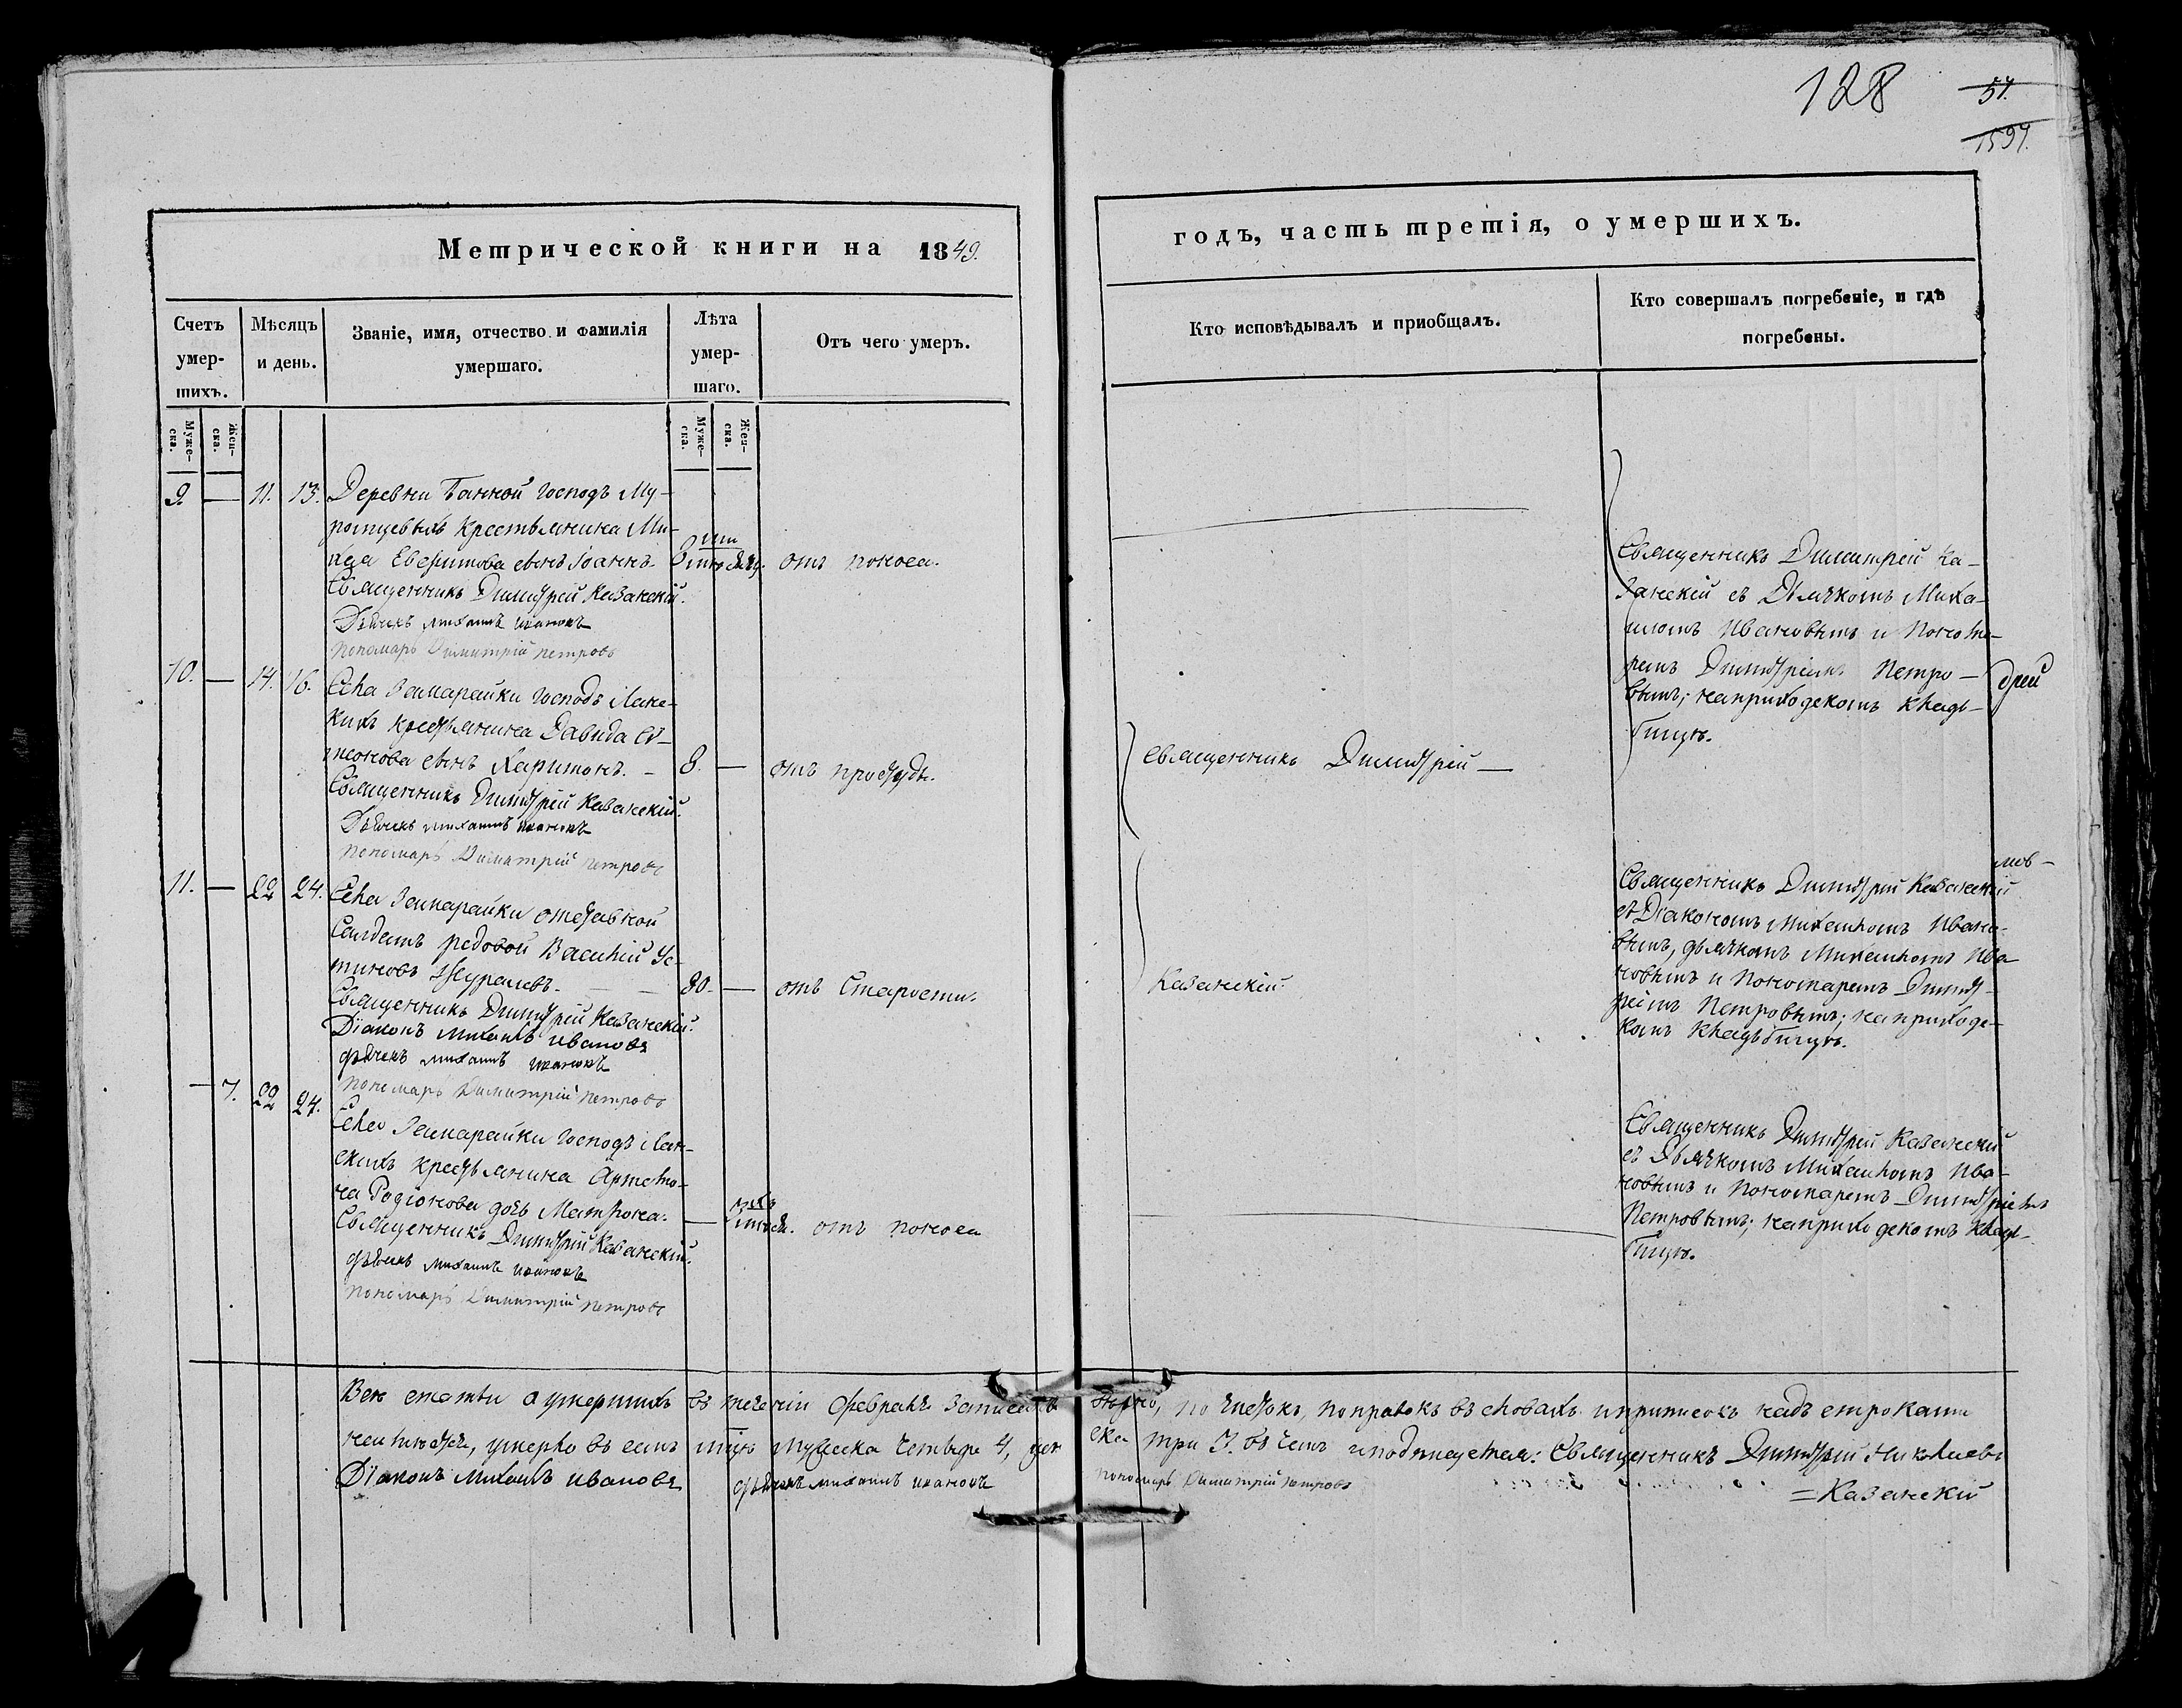 128
57.
1597.
Метрической книги на 1849.
годъ, часть третія, о умершихъ.
Счетъ умер-шихъ.
Мѣсяцъ и день.
Званіе, имя, отчество и фамилія умершаго.
Лѣта умер-шаго.
Отъ чего умеръ.
Кто исповѣдывалъ и приобщалъ.
Кто совершалъ погребеніе, и гдѣ погребены.
Муже-ска.
Жен-ска.
Муже-ска.
Жен-ска.
9. — 11. 13. Деревни Банной господъ Му-
ромцевыхъ крестьянина Ми-
сынъ Іоаннъ.
отъ поноса.
Священникъ Димитрій Казанскій.
Дьячекъ Михаилъ Ивановъ
Пономарь Димитрій Петровъ
Священникъ Димитрій Ка-
занскій съ Дьячкомъ Миха-
иломъ Ивановымъ и Понома-
ремъ Димитріемъ Петро-
вымъ; на приходскомъ клад-
бищѣ.
10. — 14. 16. Села Зимарайки господъ Ланс-
кихъ крестьянина Давида
сынъ Харитонъ. — 8. — отъ простуды.
Священникъ Димитрій Казанскій.
Дьячекъ Михаилъ Ивановъ
Пономарь Димитрій Петровъ
Священникъ Димитрій —
11. — 22 24. Села Зимарайки отставной
Салдатъ редовой Василій Ус-
тиновъ Журавлевъ. — 80. — отъ Старости.
Священникъ Димитрій Казанскій.
Діаконъ Михаилъ Ивановъ
дьячекъ Михаилъ Ивановъ
Пономарь Димитрій Петровъ
Казанскій.
Священникъ Димитрій Казанскій
съ Діакономъ Михаиломъ Ивано-
вымъ, дьячкомъ Михаиломъ Ива-
новымъ и Пономаремъ Димит-
ріемъ Петровымъ; на приходс-
комъ кладбищѣ.
— 7. 22 24. Села Зимарайки господъ Лан-
скихъ крестьянина Артемо-
на Родіонова дочь Матрона. — отъ поноса
Священникъ Димитрій Казанскій.
дьячекъ Михаилъ Ивановъ
Пономарь Димитрій Петровъ
Священникъ Димитрій Казанскій
съ Дьячкомъ Михаиломъ Ива-
новымъ и Пономаремъ Димитріемъ
Петровымъ; на приходскомъ клад-
бищѣ.
Всѣ статьи о умершихъ въ теченіи Февраля записаны вѣрно, по чистокъ, поправокъ въ словахъ и приписокъ надъ строками
умерло въ семъ мцѣ мужеска четыре 4, жен ска три 3. въ чемъ и подписуемся: Священникъ Димитрій Николаевъ
Діаконъ Михаилъ Ивановъ дьячекъ Михаилъ Ивановъ Пономарь Димитрій Петровъ
= Казанскій